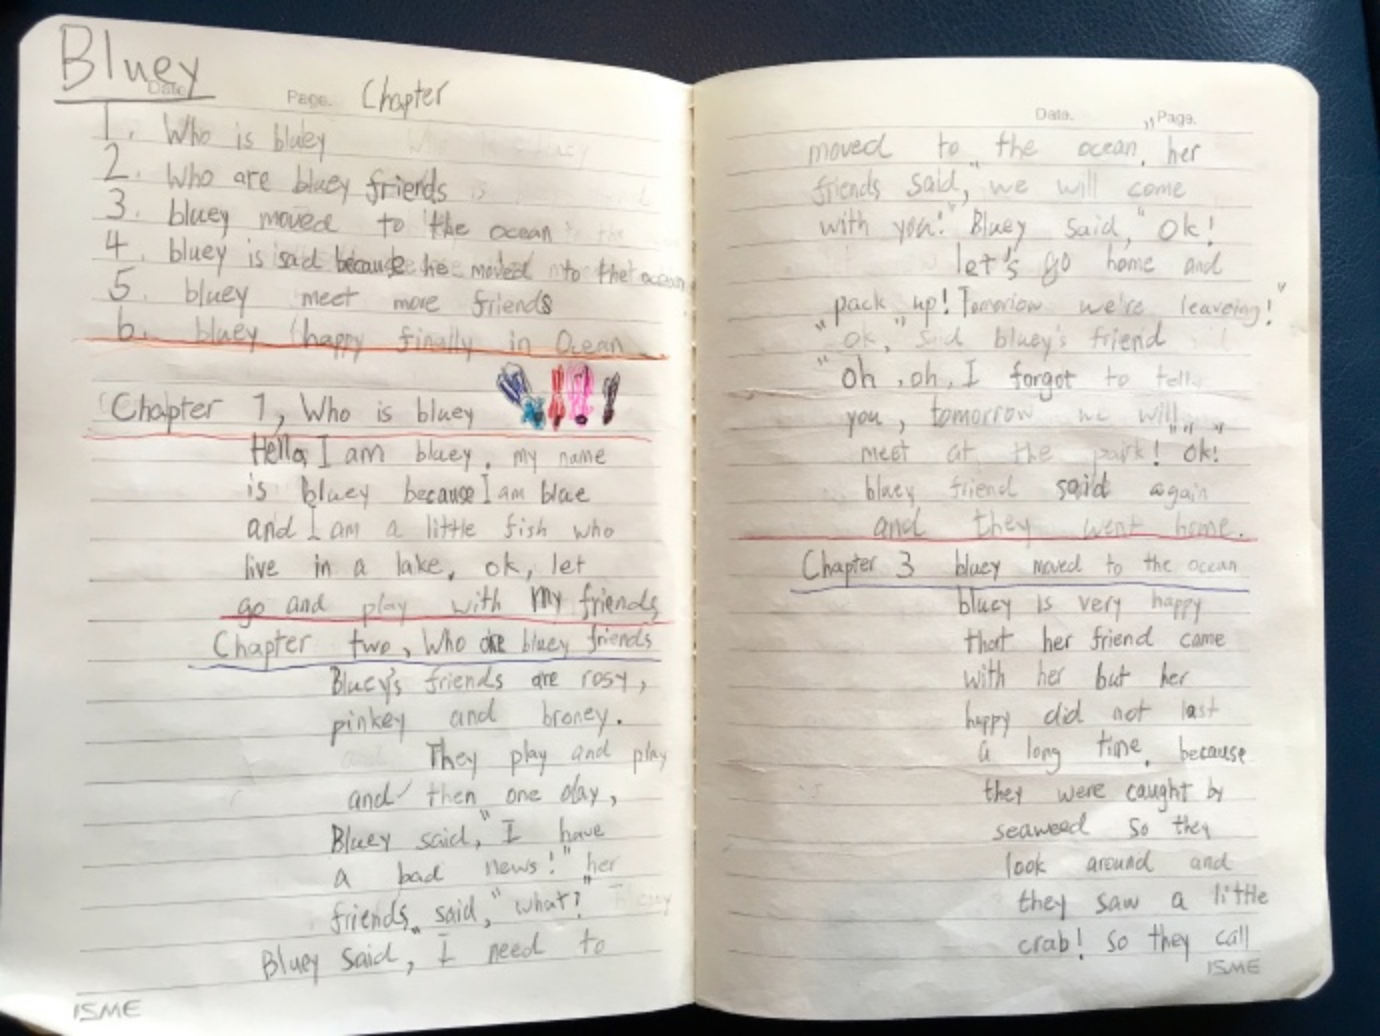 Bluey
Date.
Page. Chapter
1. Who is bluey
2. Who are bluey friends
3. bluey moved to the ocean
4. bluey is sad because he moved to the ocean
5. bluey meet more friends
6. bluey happy finally in Ocean
Chapter 1, Who is bluey
Hello, I am bluey, my name
is bluey because I am blue
and I am a little fish who
live in a lake, ok, let
go and play with my friends
Chapter two, Who are bluey friends
Bluey's friends are rosy,
pinkey and broney.
They play and play
and then one day,
Bluey said, "I have
a bad news!" her
friends said, "what?"
Bluey said, "I need to
ISME
Date. Page.
moved to the ocean," her
friends said, "we will come
with you!" Bluey said, "Ok!
let's go home and
pack up! Tomorrow we're leaveing!"
"ok," sid bluey's friend
"oh, oh, I forgot to tell
you, tomorrow we will
meet at the park!" "ok!"
bluey friend said again
and they went home.
Chapter 3 bluey moved to the ocean
bluey is very happy
that her friend came
with her but her
happy did not last
a long time, because
they were caught by
seaweed so they
look around and
they saw a little
crab! so they call
ISME